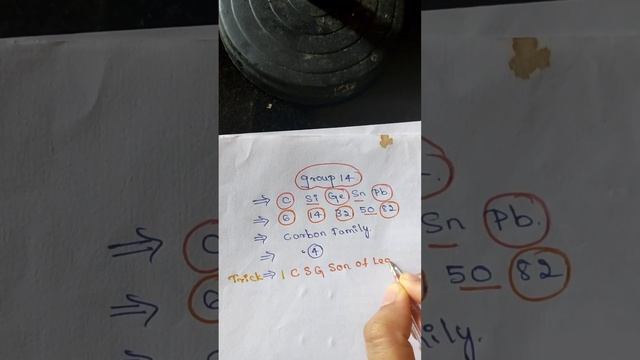 group 14
⇒ C Si Ge Sn Pb.
⇒ 6 14 32 50 82
⇒ Carbon family.
⇒ 4
Trick ⇒ 1 C S G Son of Lea